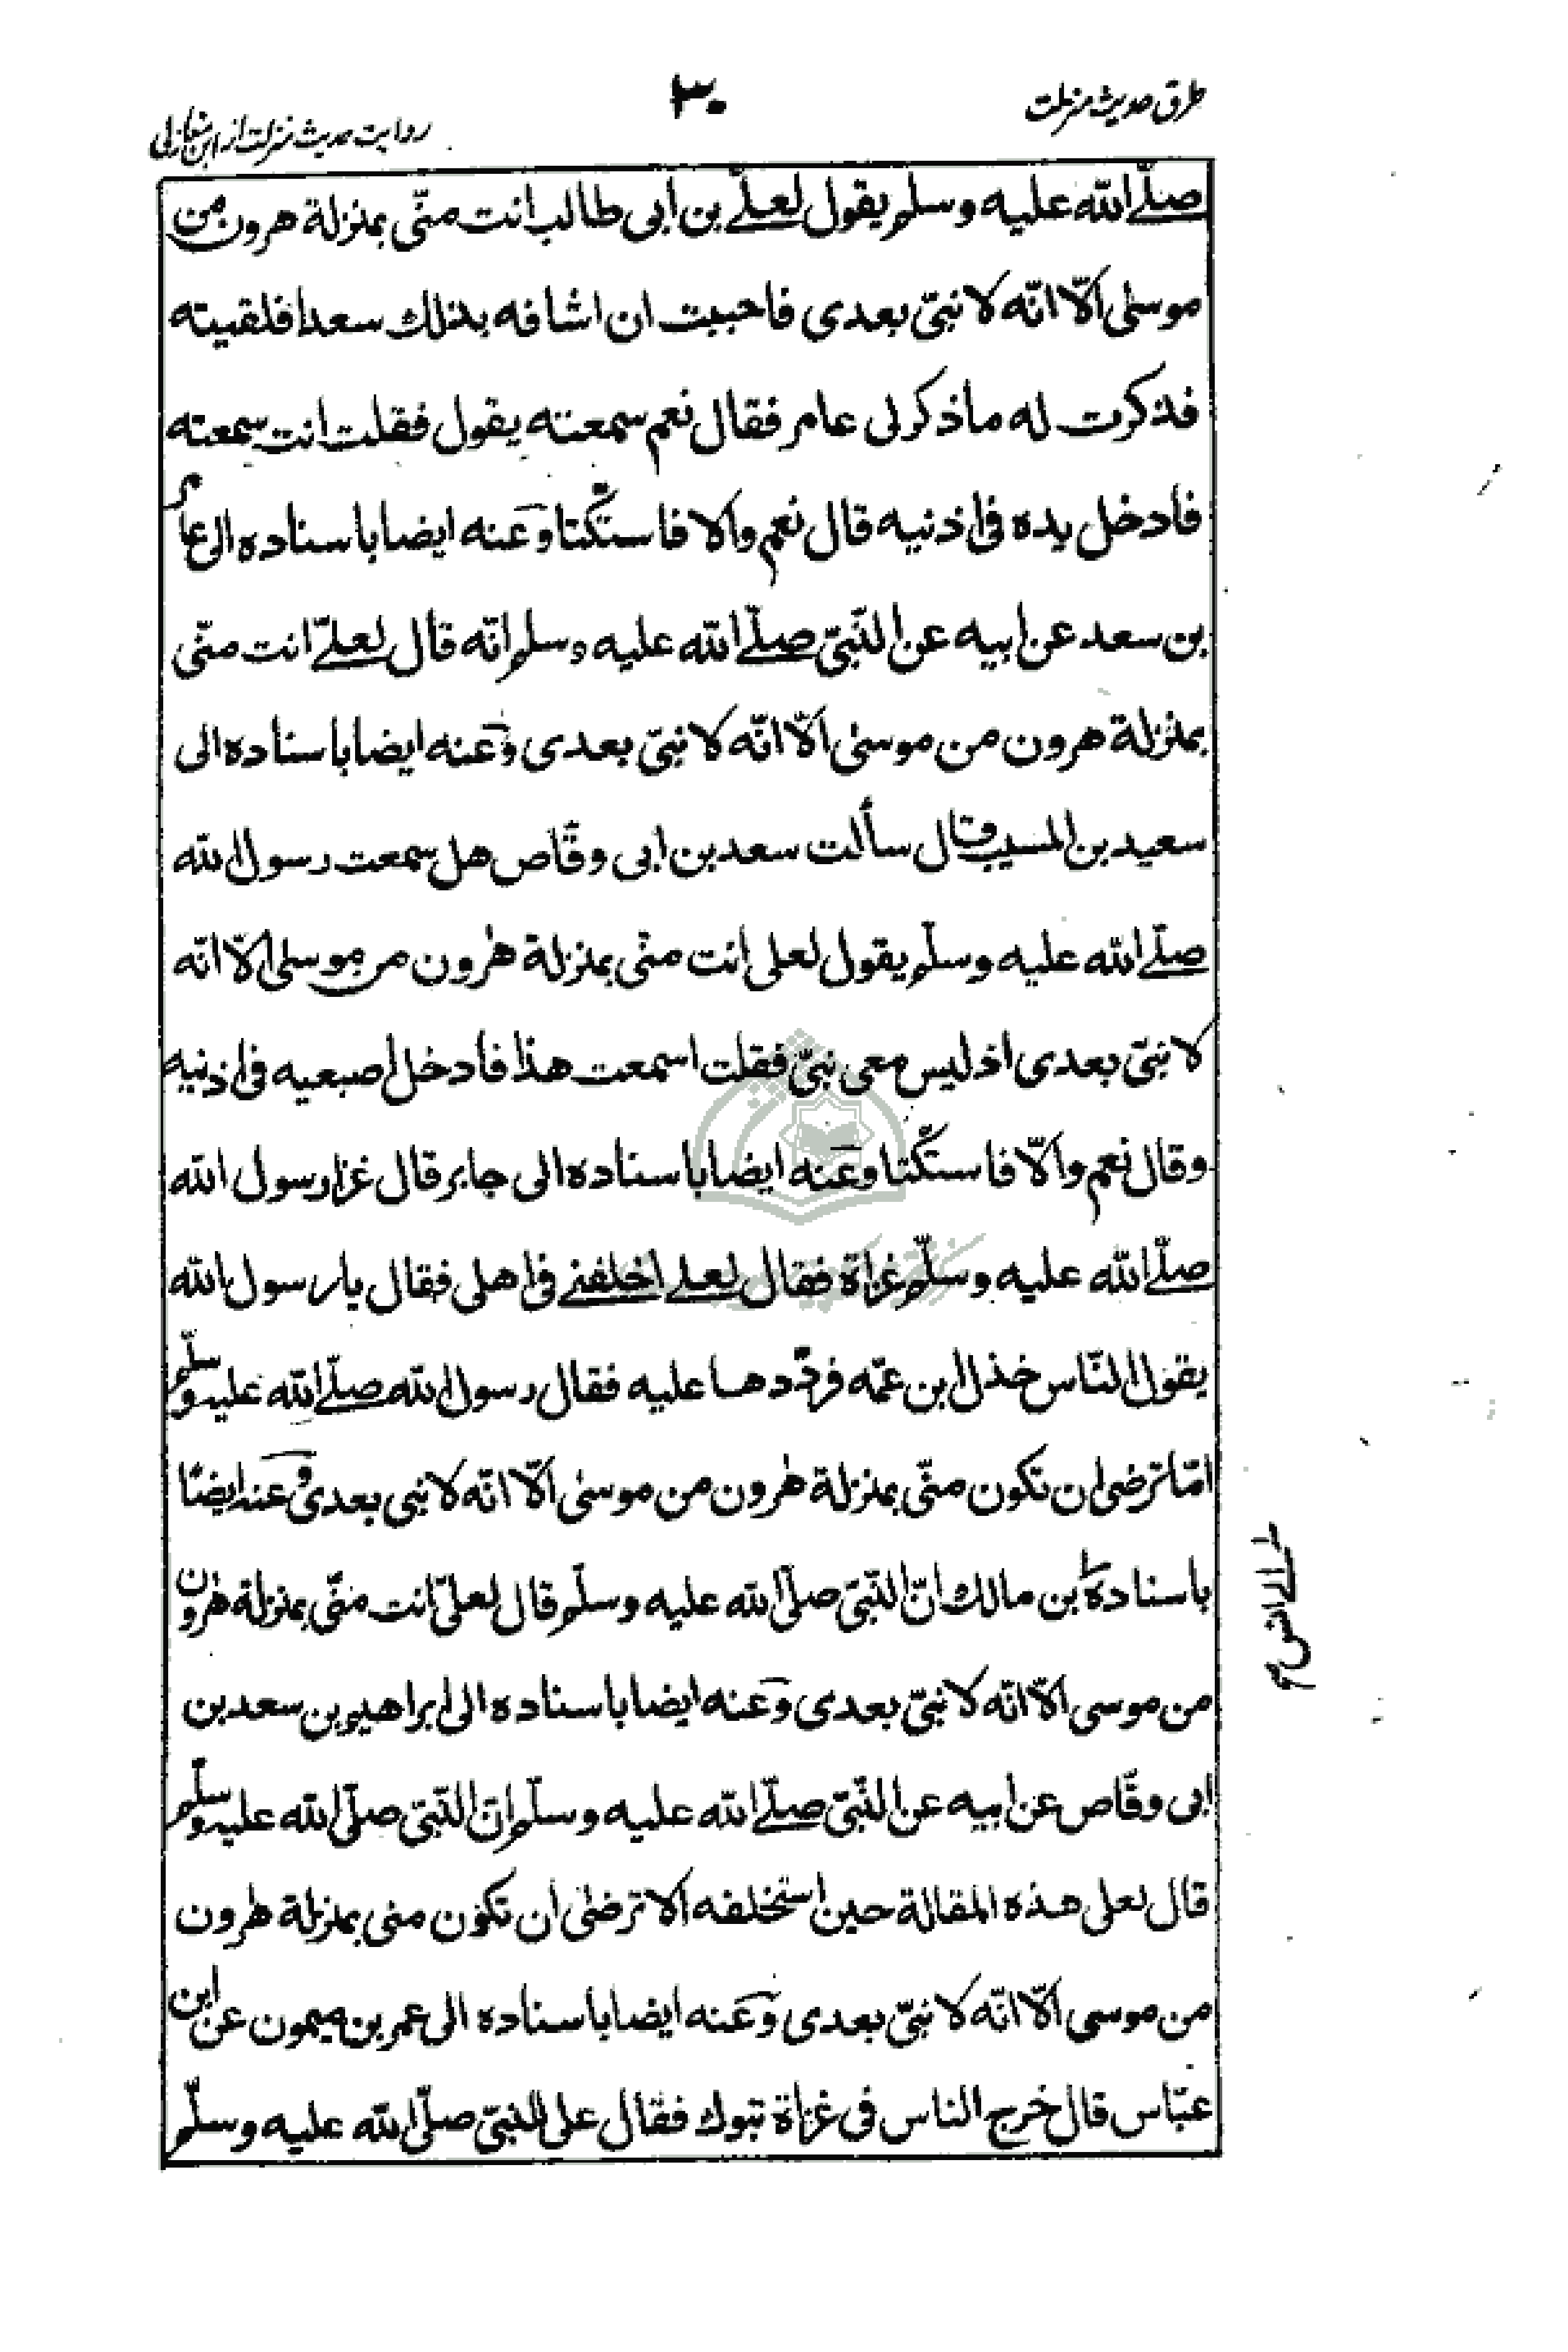 طرق حدیث منزلت
۳۰
روایت حدیث منزلت از ابن مغازلی
صلّے اللّه علیه وسلم یقول لعلے بن ابی طالب انت منّی بمنزلة هرون من
موسٰی الّا انّه لا نبیّ بعدی فاحببت ان اشافه بذلك سعدا فلقیته
فذکرت له ما ذکر لی عامر فقال نعم سمعته یقول فقلت انت سمعته
فادخل یده فی اذنیه قال نعم والا فاستکّتا وعنه ایضا باسناده الی عامر
بن سعد عن ابیه عن النّبیّ صلّے اللّه علیه وسلم انّه قال لعلےّ انت منّی
بمنزلة هرون من موسٰی الّا انّه لا نبیّ بعدی وعنه ایضا باسناده الی
سعید بن المسیب قال سألت سعد بن ابی وقّاص هل سمعت رسول اللّه
صلّے اللّه علیه وسلّم یقول لعلی انت منّی بمنزلة هٰرون من موسٰی الّا انّه
لا نبیّ بعدی اذ لیس معی نبیّ فقلت اسمعت هذا فأدخل اصبعیه فی اذنیه
وقال نعم والّا فاستکّتا وعنه ایضا باسناده الی جابر قال غزا رسول اللّه
صلّے اللّه علیه وسلّم غزاة فقال لعلے اخلفنے فی اهلی فقال یا رسول اللّه
یقول النّاس خذل ابن عمّه فردّدها علیه فقال رسول اللّه صلّے اللّه علیه وسلّم
امّا ترضی ان تکون منّی بمنزلة هٰرون من موسٰی الّا انّه لا نبی بعدی وعنه ایضًا
باسناده بن مالك انّ النّبیّ صلّی اللّه علیه وسلّم قال لعلیّ انت منّی بمنزلة هٰرون
الی انس
من موسی الّا انّه لا نبیّ بعدی وعنه ایضا باسناده الی ابراهیم بن سعد بن
ابی وقّاص عن ابیه عن النّبیّ صلّے اللّه علیه وسلّم انّ النّبیّ صلّی اللّه علیه وسلّم
قال لعلی هذه المقالة حین استخلفه الا ترضٰی ان تکون منی بمنزلة هٰرون
من موسی الّا انّه لا نبیّ بعدی وعنه ایضا باسناده الی عمر بن میمون عن ابن
عبّاس قال خرج الناس فی غزاة تبوك فقال علی للنبیّ صلّی اللّه علیه وسلّم